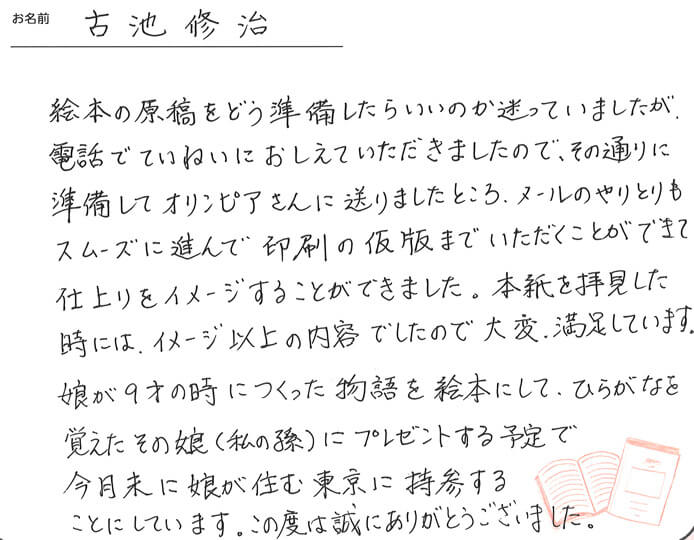 お名前 古池修治
絵本の原稿をどう準備したらいいのか迷っていましたが、
電話でていねいにおしえていただきましたので、その通りに
準備してオリンピアさんに送りましたところ、メールのやりとりも
スムーズに進んで印刷の仮版までいただくことができて
仕上りをイメージすることができました。本紙を拝見した
時には、イメージ以上の内容でしたので大変、満足しています。
娘が9才の時につくった物語を絵本にして、ひらがなを
覚えたその娘(私の孫)にプレゼントする予定で
今月末に娘が住む東京に持参する
ことにしています。この度は誠にありがとうございました。